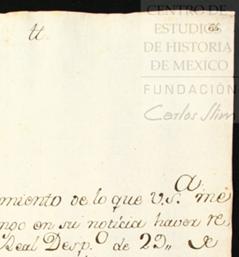 CENTRO DE
ESTUDIOS
DE HISTORIA
DE MEXICO
FUNDACIÓN
Carlos Slim
tt.
66
miento de lo que V.S.ª me
ngo en su notícia haver re
Real Desp.º de 29,, de